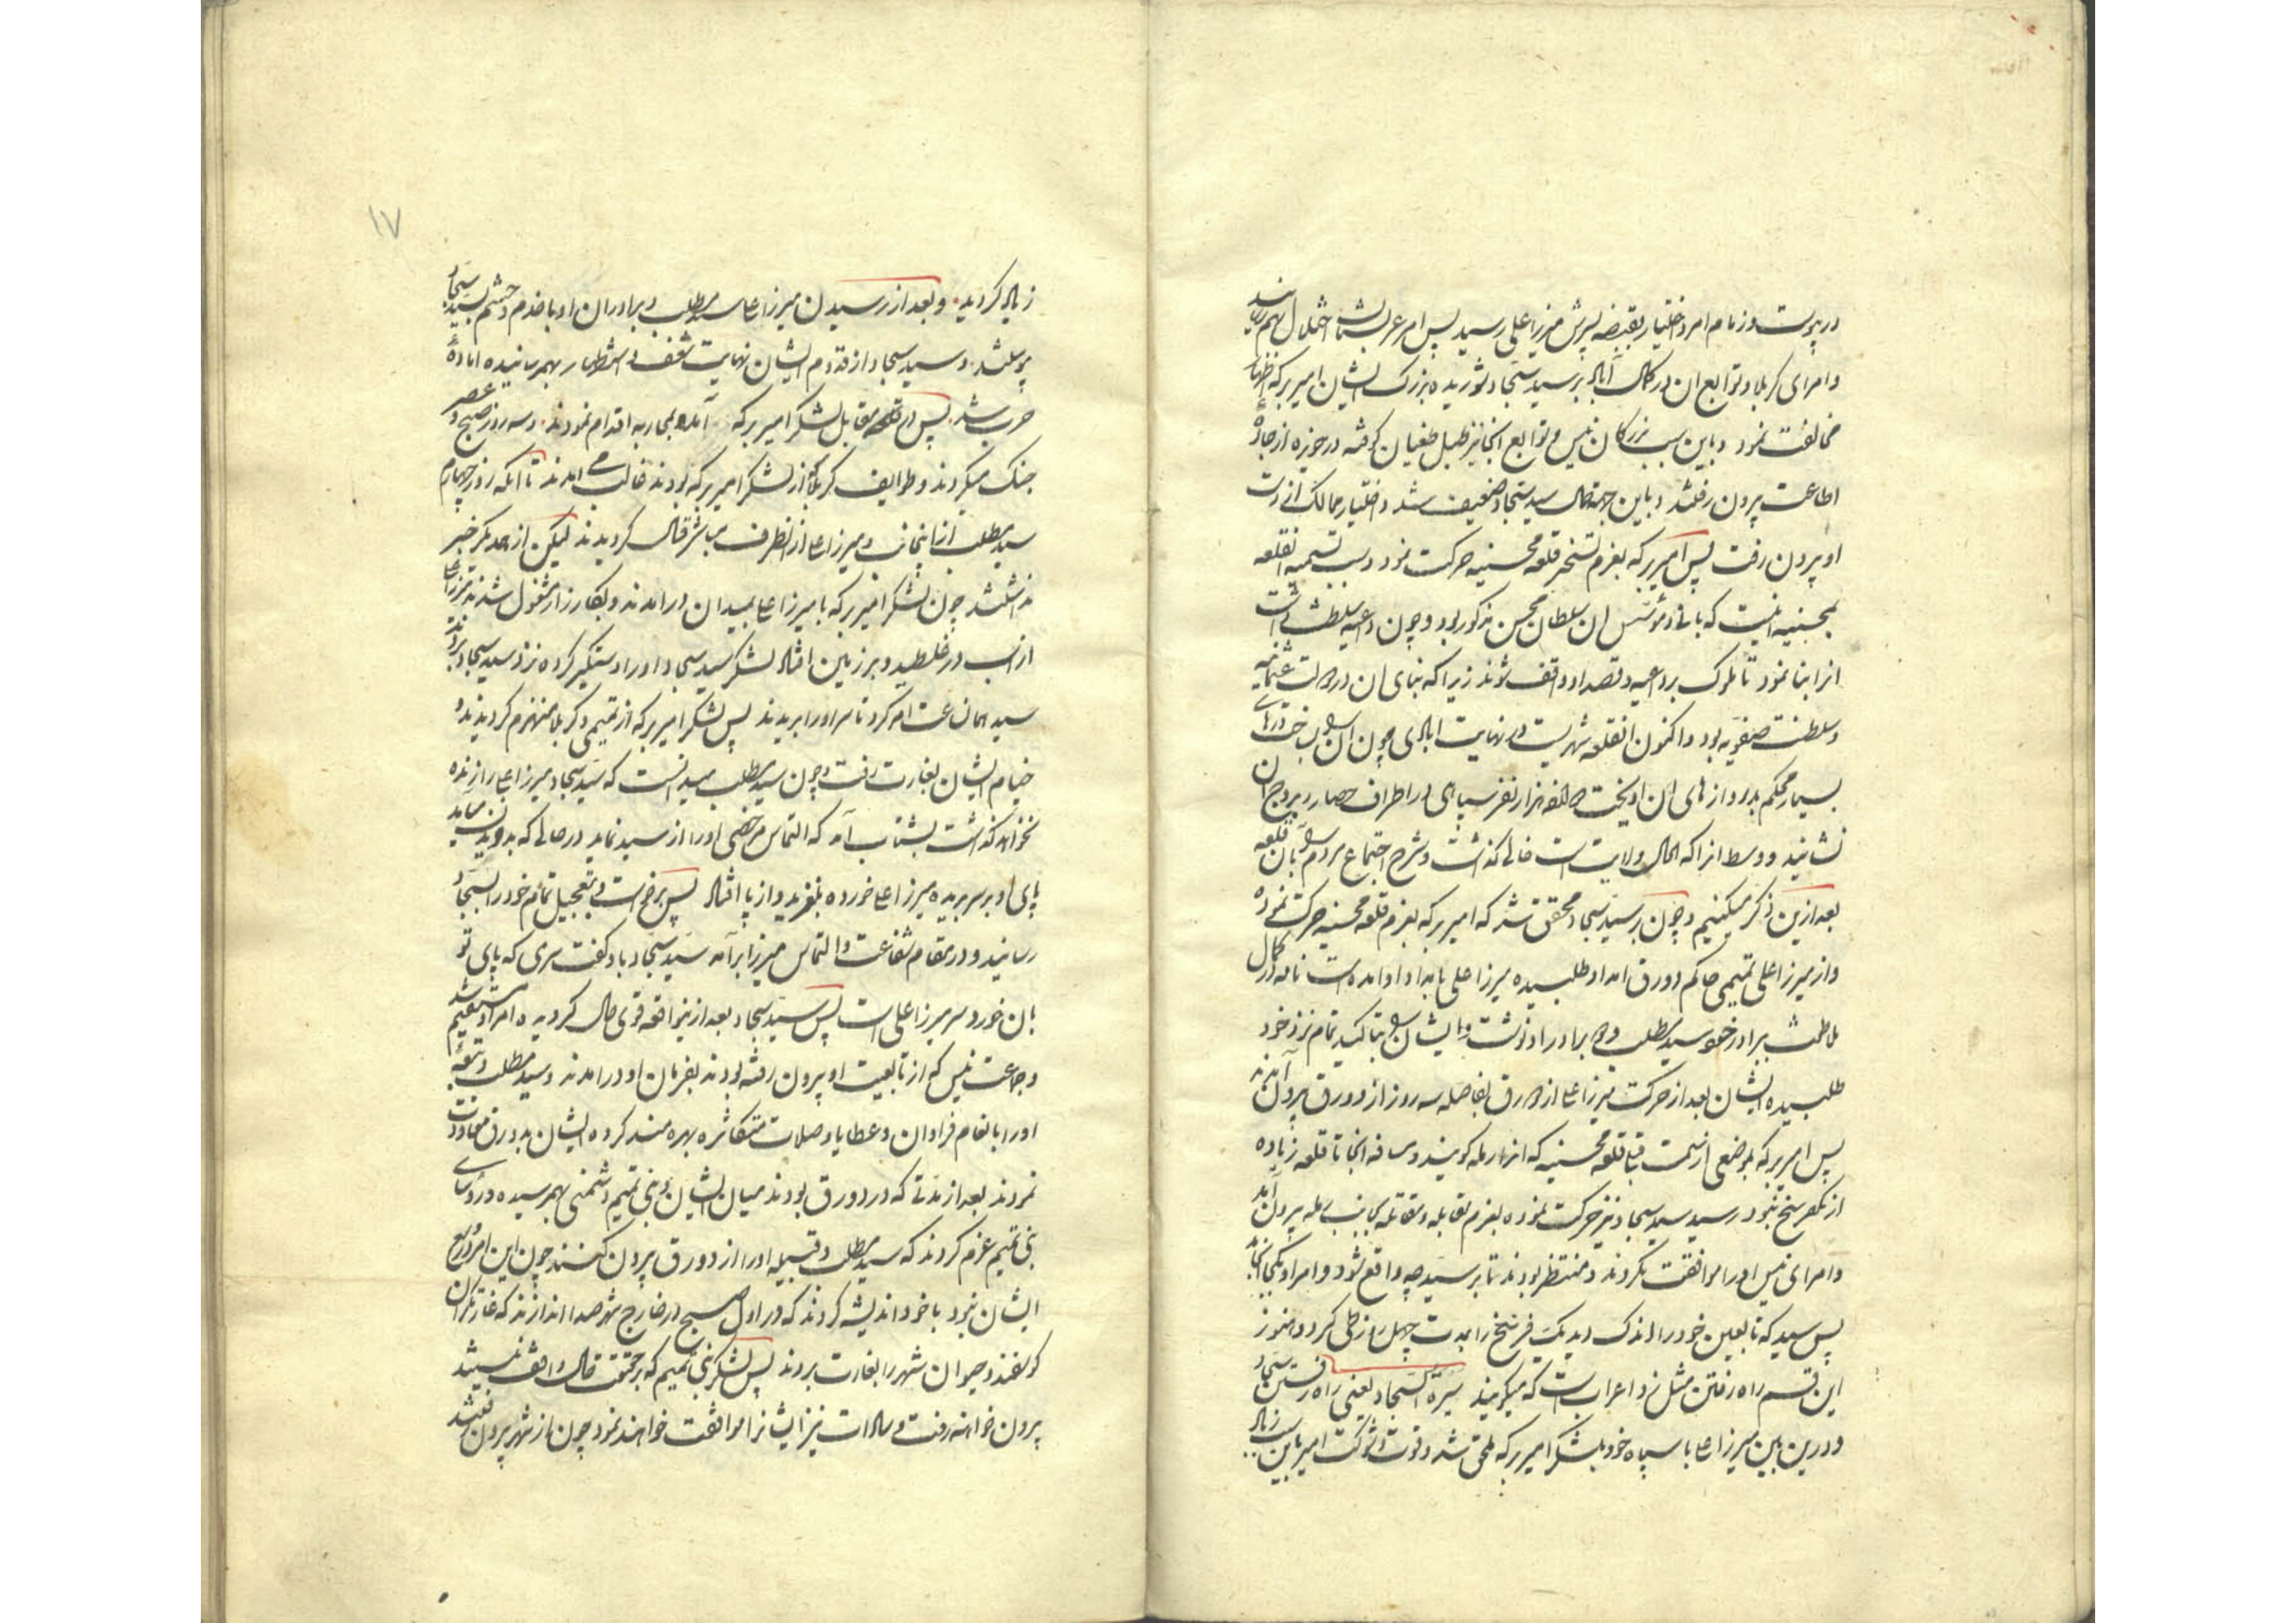 در پیوست و زمام امر و اختیار بقبضه پسرش میرزا علی رسید پس امر عربستان اختلال بهم رسانید
و امرای کربلا و توابع ان در کمال آباد بر سید سجاد شوریده بزرک ایشان امیر برکه اظهار
مخالفت نمود و باین سبب بزرکان نیس و توابع انجا نیز طبل طغیان کوفته در حوزه از جادهٔ
اطاعت بیرون رفتند و باین جهة حال سید سجاد ضعیف شد و اختیار ممالک از دست
او بیرون رفت پس امیر برکه بعزم تسخیر قلعه محسنیه حرکت نمود و سبب تسمیه انقلعه
بمحسنیه اینست که بانی و مؤسس ان سلطان محسن مذکور بود و چون داعیه سلطنت داشت
انرا بنا نمود تا ملوک بر داعیه و قصد او واقف شوند زیرا که بنای ان در دولت عثمانیه
و سلطنت صفویه بود و اکنون انقلعه شهریست در نهایت ابادی چون درهای
بسیار محکم بدروازهای ان اویخت هزار نفر سپاهی در اطراف حصار و بروج ان
نشانید و وسط انرا که الحال ولایت است خالی کذاشت و شرح اجتماع مردم را بان قلعه
بعد ازین ذکر میکنیم و چون بر سید سجاد محقق شد که امیر برکه بعزم قلعه محسنیه حرکت نموده
و از میرزا علی تمیمی حاکم دورق امداد طلبیده میرزا علی بامداد او امده است نامه در کمال
ملاطفت ببرادر خود سید مطلب و برادر او نوشت و ایشان را بتاکید تمام نزد خود
طلبیده ایشان بعد از حرکت میرزا علی از دورق بفاصله سه روز از دورق بیرون آمدند
پس امیر برکه بموضعی از سمت قلعه محسنیه که انرا رمله کویند و مسافه انجا تا قلعه زیاده
از یکفرسخ نبود رسید سید سجاد نیز حرکت نموده بعزم مقابله و مقاتله بجانب رمله بیرون آمد
و امرای نیس او را موافقت نکردند و منتظر بودند تا بر سید چه واقع شود و امر او بکجا انجامد
پس سید که تابعین خود را اندک دید یک فرسخ را بمدت چهل روز طی کرد و هنوز
این قسم راه رفتن مثل نزد اعراب است که میکویند سیرة السجاد یعنی راه رفتن سجاد
و درین بین میرزا علی با سپاه خود بلشکر امیر برکه ملحق شد و قوت و شوکت امیر باین سبب زیاد
۱۷
زیاد کردید و بعد از رسیدن میرزا علی سید مطلب و برادران او با خدم و حشم بسید سجاد
پیوستند و سید سجاد از قدوم ایشان نهایت شعف و استظهار بهم رسانیده امادهٔ
حرب شد پس در مقابل لشکر امیر برکه آمده بمحاربه اقدام نمودند و سه روز صبح و عصر
جنک میکردند و طوایف کربلا که از لشکر امیر برکه بودند غالب می امدند تا انکه روز چهارم
سید مطلب از اینجانب و میرزا علی از انطرف مباشر قتال کردیدند لیکن از همدیکر خبر
نداشتند چون لشکر امیر برکه با میرزا علی بمیدان درامدند و بکارزار مشغول شدند میرزا علی
از اسب در غلطید و بر زمین افتاد لشکر سید سجاد او را دستکیر کرده نزد سید سجاد بردند
سید همان ساعت امر کرد تا سر او را بریدند پس لشکر امیر برکه از تمیمی و کربلا منهزم کردیدند و
خیام ایشان بغارت رفت و چون سید مطلب میدانست که سید سجاد میرزا علی را زنده
نخواهد کذاشت بشتاب آمد که التماس مرخصی او را از سید نماید در حالی که میامد
پای او بر سر بریده میرزا علی خورده بلغزید و از پا افتاد پس برخواست و بتعجیل تمام خود را بسجاد
رسانید و در مقام شفاعت و التماس میرزا برآمد سید سجاد باو کفت سری که پای تو
بان خورد سر میرزا علی است پس سید سجاد بعد ازین واقعه قوی حال کردیده امر او مستقیم شد
و جماعت نیس که از تابعیت او بیرون رفته بودند بفرمان او درامدند و سید مطلب و تبعهٔ
او را بانعام فراوان و عطایا و صلات متکاثره بهره مند کرده ایشان بدورق معاودت
نمودند بعد از مدتی که در دورق بودند میان ایشان و بنی تمیم دشمنی بهم رسیده و رؤسای
بنی تمیم عزم کردند که سید مطلب و قبیله او را از دورق بیرون کنند چون این امر در وسع
ایشان نبود با خود اندیشه کردند که در اول صبح در خارج شهر صدا اندازند که غارتکران
کوسفند و حیوان شهر را بغارت بردند پس لشکر بنی تمیم که بر حقیقت حال واقف نیستند
بیرون خواهند رفت و سادات نیز ایشانرا موافقت خواهند نمود چون از شهر بیرون رفتند